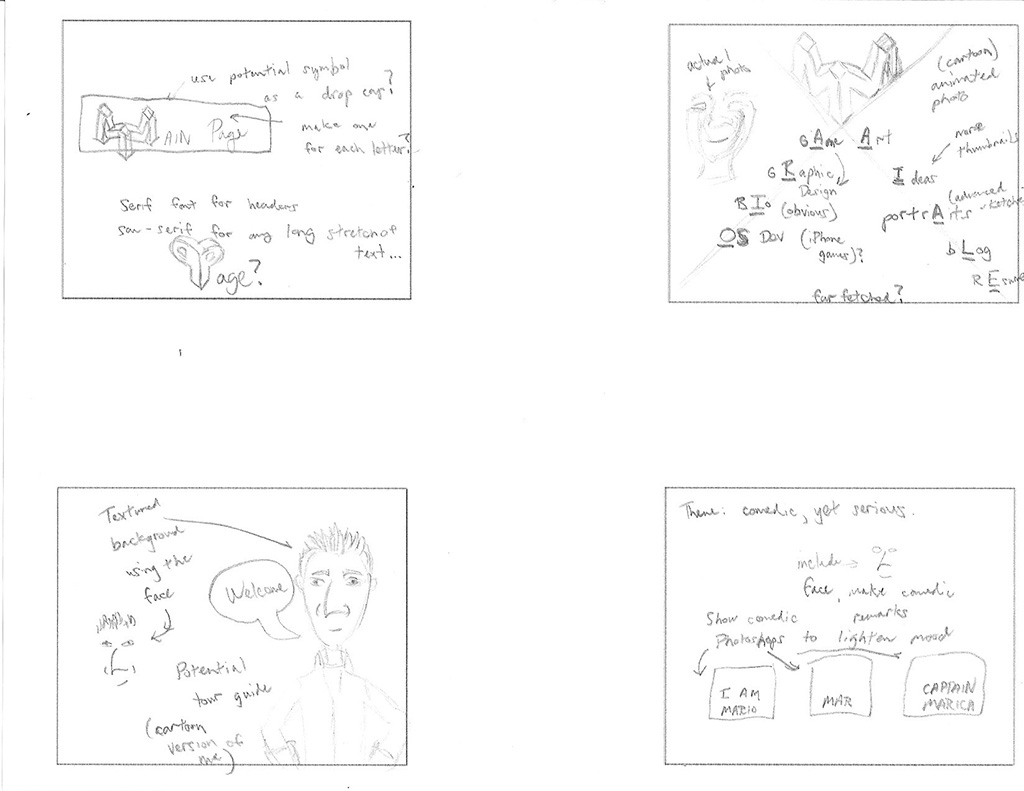 use potential symbol
as a drop cap?
AIN Page
make one
for each letter?
Serif font for headers
san-serif for any long stretch of
text...
age?
actual
photo
(cartoon)
animated
photo
GAme Art
more
thumbnails
GRaphic
Design
Ideas
BIo (obvious)
portrAits
(advanced
sketches
OS Dev (iPhone
games)?
bLog
REsume
far fetched?
Textured
background
using the
face
Welcome
Potential
tour guide
(cartoon
version of
me)
Theme: comedic, yet serious.
include
face, make comedic
remarks
Show comedic
Photoshops to lighten mood
I AM
MARIO
MAR
CAPTAIN
MARICA